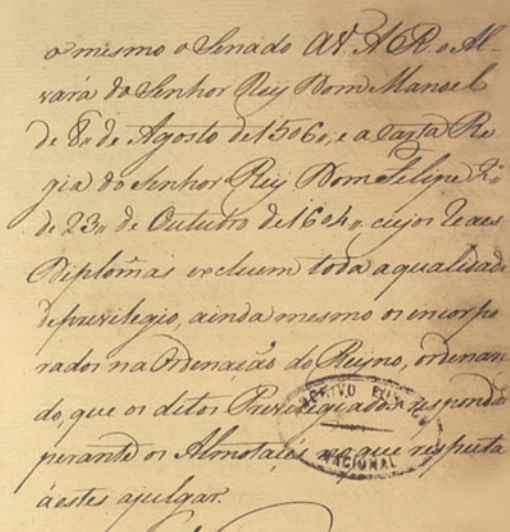 o mesmo o Senado AV. A R. o Al-
vará do Senhor Rey Dom Manoel
de 8,, de Agosto de 1506,, e a Carta Re
gia do Senhor Rey Dom Felipe 2º
de 23,, de Outubro de 1604,, cujos Reaes
Diplomas excluem toda a qualidade
de previlegio, ainda mesmo os incorpo
rados na Ordenação do Reyno, ordenan
do, que os ditos Previlegiados respondão
perante os Almotacés no que respeita
á estes ajulgar.
ARCHIVO PUBLICO
NACIONAL